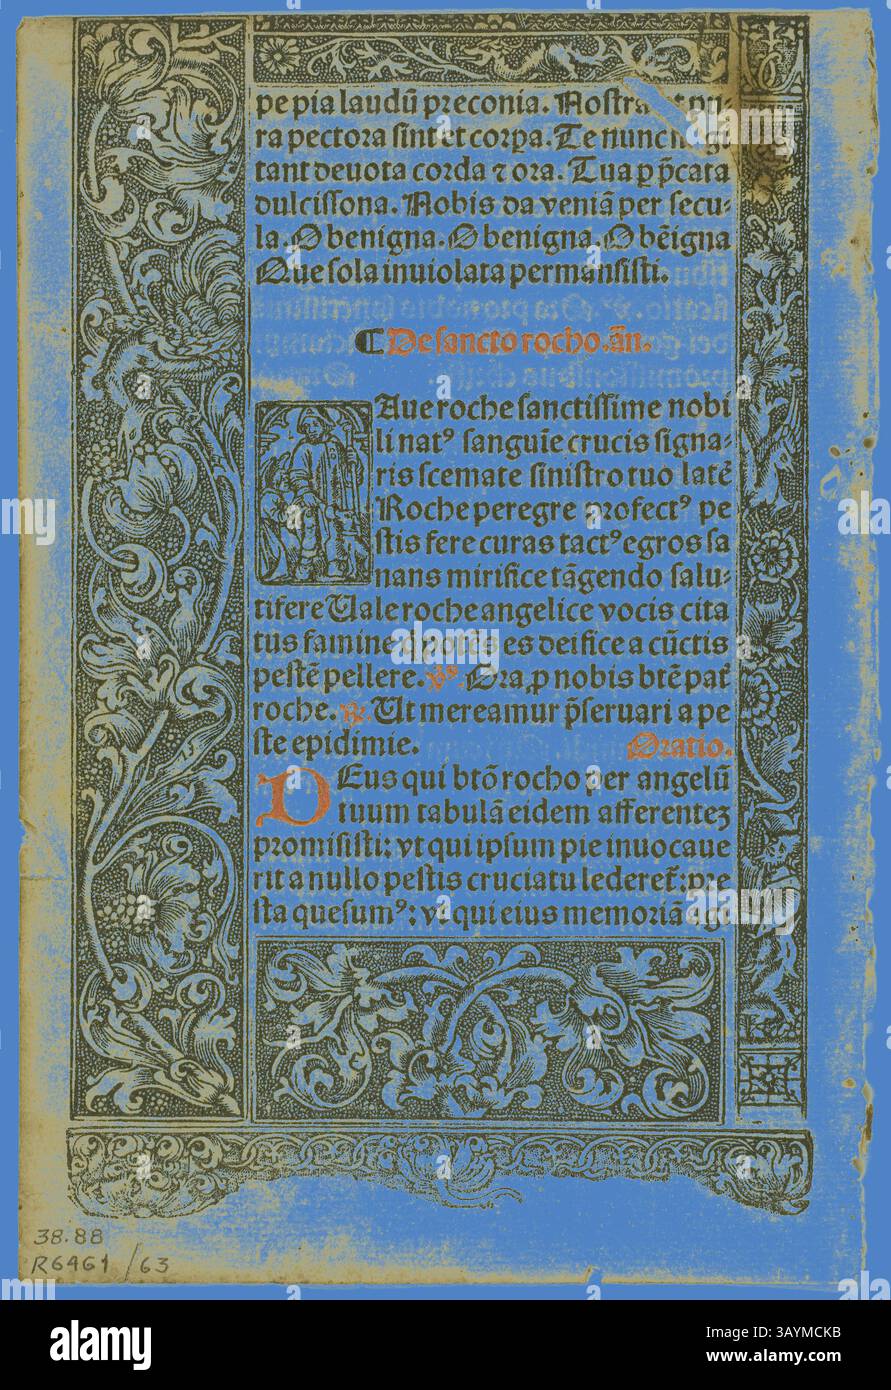 pe pia laudū preconia. Nostra et pu-
ra pectora sint et corpa. Te nunc
tant deuota corda ⁊ ora. Tua p p̄cata
dulcissona. Nobis da veniā per secu-
la. O benigna. O benigna. O bēigna
Que sola inuiolata permansisti.
¶ De sancto rocho. añ.
Aue roche sanctissime nobi
li natꝰ sanguīe crucis signa-
ris scemate sinistro tuo latē
Roche peregre profectꝰ pe
stis fere curas tactꝰ egros sa
nans mirifice tāgendo salu-
tifere Uale roche angelice vocis cita
tus famine q̇ potēs es deifice a cūctis
pestē pellere. ℣s. Ora ꝓ nobis btē pat̄
roche. ℞. Ut mereamur p̄seruari a pe
ste epidimie. Oratio.
DEus qui btō rocho per angelū
tuum tabulā eidem afferentez
promisisti: vt qui ipsum pie inuocaue
rit a nullo pestis cruciatu lederet̄: pre
sta quesumꝰ: vt qui eius memoriā agi
38.88
R6461/63
alamy
Image ID: 3AYMCKB
www.alamy.com